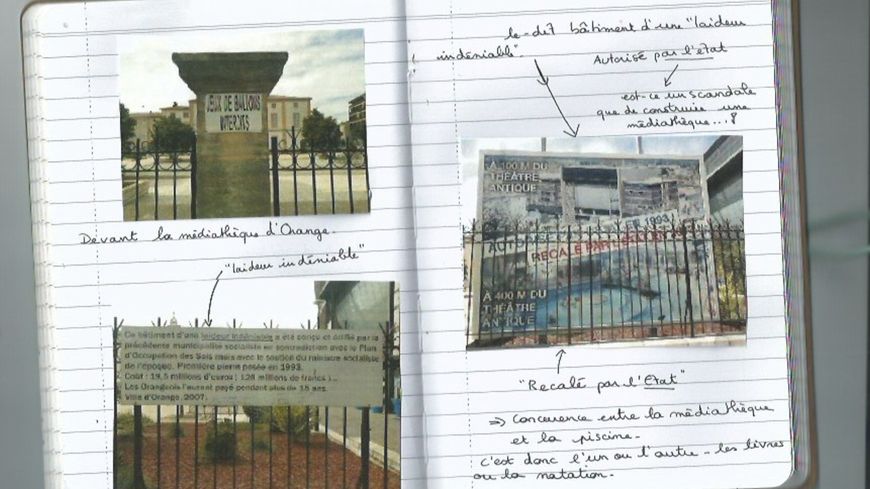 JEUX DE BALLONS
INTERDITS
Devant la médiathèque d'Orange.
"laideur indéniable"
Ce bâtiment d'une laideur indéniable a été conçu et édifié par la
précédente municipalité socialiste en contradiction avec le Plan
d'Occupation des Sols mais avec le soutien du ministre socialiste
de l'époque. Première pierre posée en 1993.
Coût : 19,5 millions d'euros ( 128 millions de francs )...
Les Orangeois l'auront payé pendant plus de 15 ans.
Ville d'Orange, 2007.
bâtiment d'une "laideur
indéniable".
Autorisé par l'état
est-ce un scandale
que de construire une
médiathèque...?
À 100 M DU
THÉÂTRE
ANTIQUE
EN 1993
RECALÉ PAR L'ÉTAT
À 400 M DU
THÉÂTRE
ANTIQUE
"Recalé par l'Etat"
⇒ Concurence entre la médiathèque
et la piscine.
C'est donc l'un ou l'autre - les livres
ou la natation.